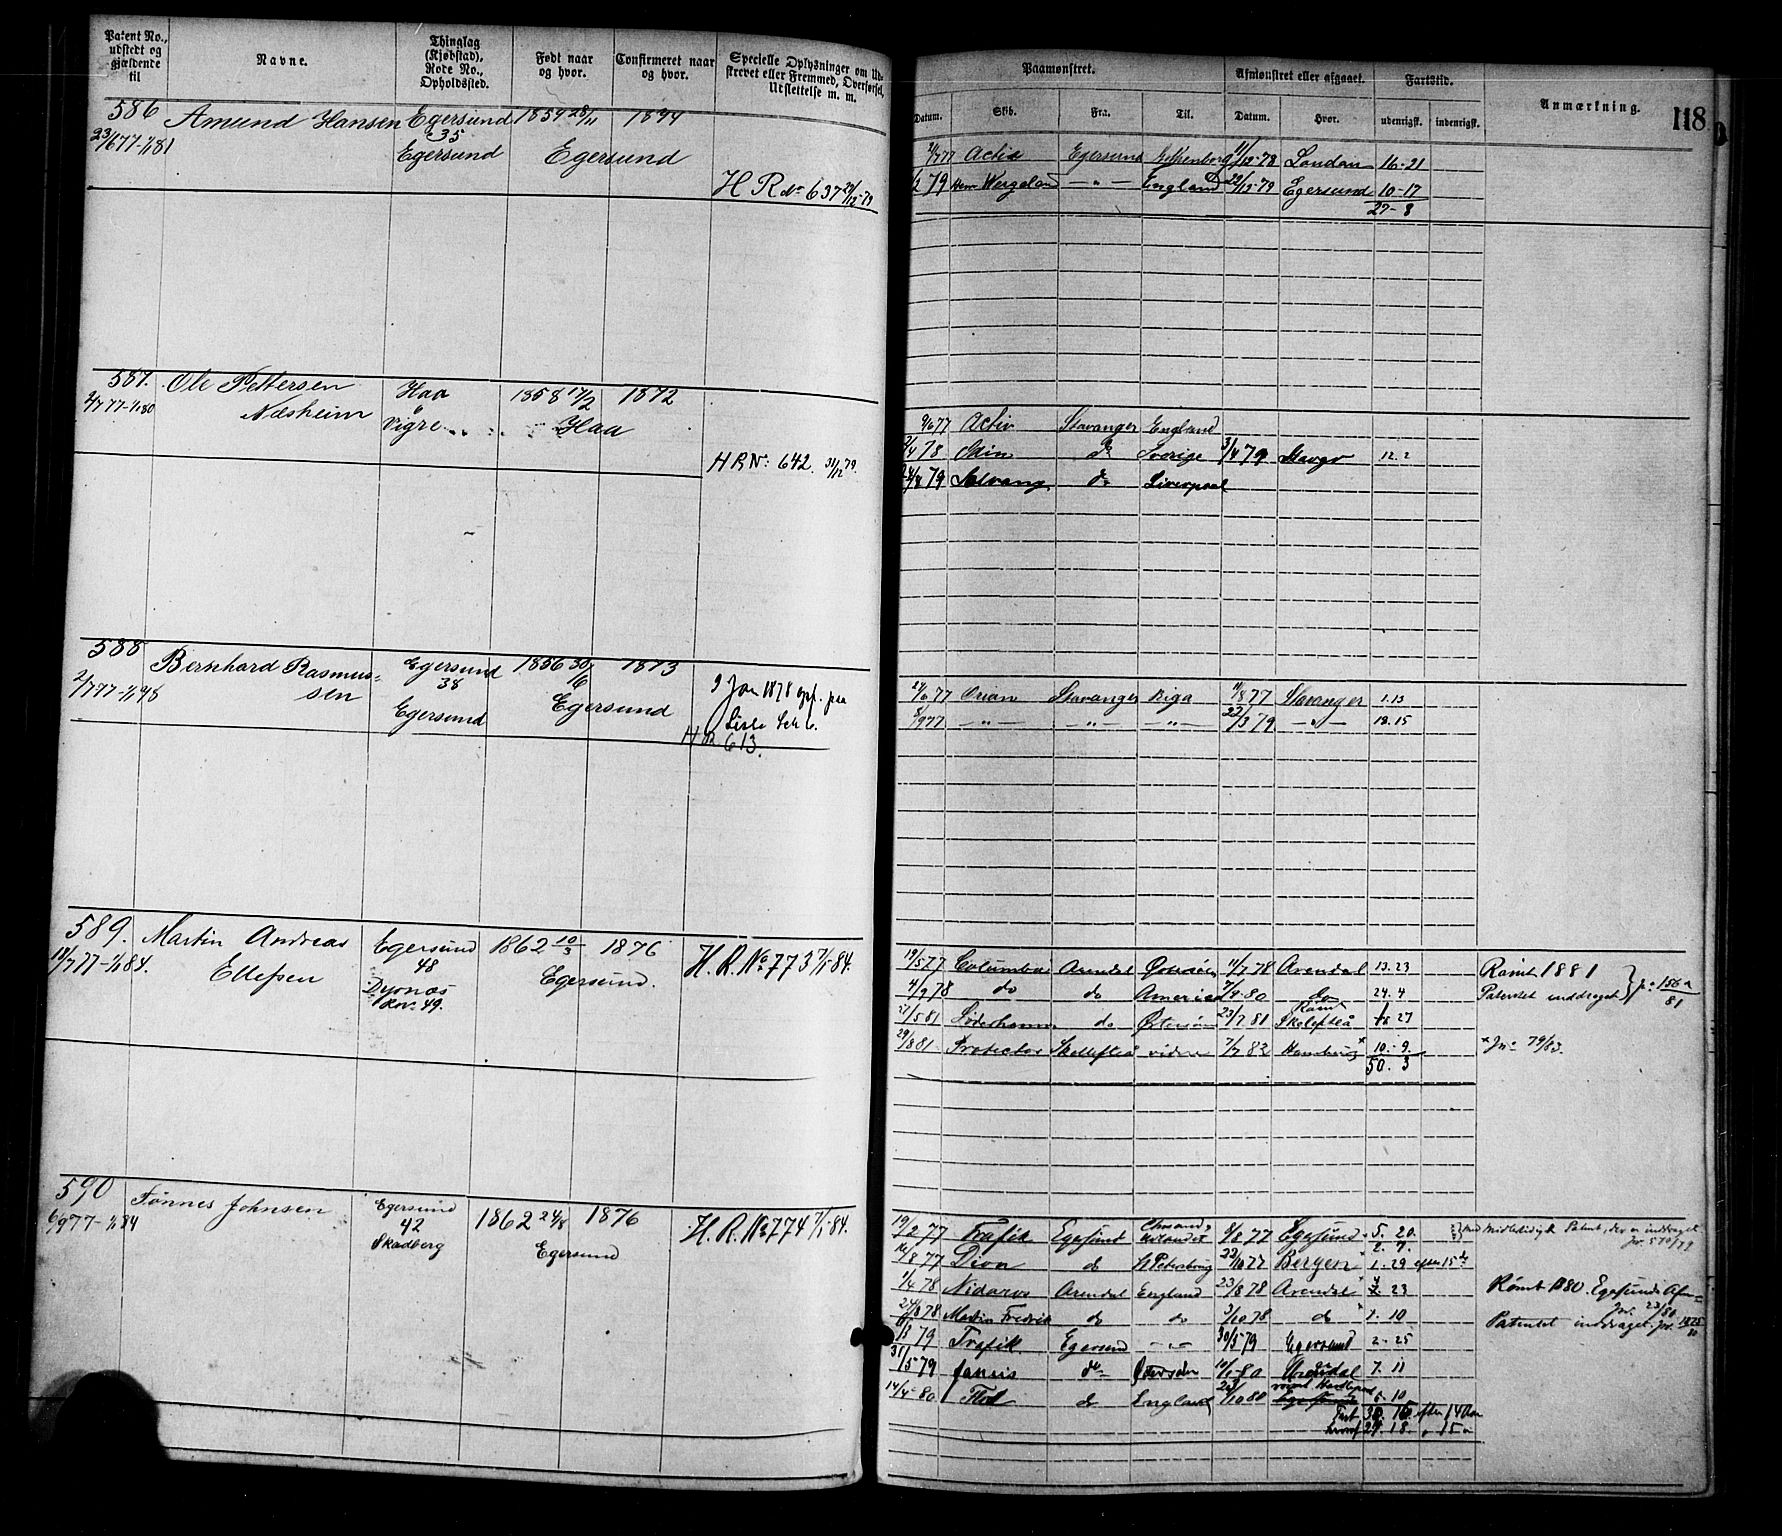 Patent No., udstedt og gjældende til
Navne.
Thinglag (Kjøbstad). Rode No., Opholdssted.
Født naar og hvor.
Confirmeret naar og hvor.
Specielle Oplysninger om Udskrevet eller Fremmed, Overførsel, Udslettelse m. m.
Paamønstret.
Afmønstret eller afgaaet.
Fartstid.
Anmærkning.
118
Datum.
Skib.
Fra.
Til.
Datum.
Hvor.
udenrigsk.
indenrigsk.
586 Amund Hansen Egersund 1859 28/11 1874
23/6 77-1/1 81 35
Egersund Egersund
H R No 637 29/12-79
2/7 77 Activ Egersund Gothenborg 11/12-78 London 16-21
79 Henr Wergeland — " — England 22/12-79 Egersund 10-17
27-8
587. Ole Pettersen Haa 1858 17/2 1872
2/7 77-1/1 80 Næsheim Vigre Haa
H R No: 642. 31/12 79.
9/6 77 Activ Stavanger England
78 Odin do Sverige 3/4 79 Stavgr 12. 2
79 Solvang do Liverpool
588 Bernhard Rasmus- Egersund 1856 30/6 1873
2/7 77-1/1 78 sen 38
Egersund Egersund
9 Jan 1878 opf. paa
H R. 613.
77 Orion Stavanger Riga 11/8 77 Stavanger 1. 13
8/9 77 — " — " — " — 22/3 79 — " — 18. 15
589. Martin Andreas Egersund 1862 10/3 1876
18/7 77-1/1 84. Ellefsen 48 Egersund.
Dyrnæs
Rno. 49.
H. R. No. 773 7/1-84.
19/5 77 Columbus Arendal Østersøen 11/7 78 Arendal 13. 23
4/9 78 do do America 7/9-80 do 24. 4
21/5 81 Söderhamn do Østersøen 23/7 81 Skelefteå 27
29/8 81 Protector Skellefteå videre 7/7 82 Hamburg x 10. 9.
50. 3
Rømt 1881
Patentet inddraget
x Jno 79/83.
590 Tønnes Johnsen Egersund 1862 24/8 1876
6/9 77-1/1 84 42 Egersund
Skadberg
H. R. No 774 7/1-84.
19/2 77 Trafik Egersund 8/8 77 Egersund 5. 20.
16/8 77 Dion do St Petersborg 22/10 77 Bergen 1. 29 efter 15
1/4 78 Nidaros Arendal England 23/8 78 Arendal 23
24/8 78 Martin Fredrik do do 3/10 78 do 1. 10
79 Trafik Egersund — " — 30/5 79 Egersund 2-25
31/5 79 do 80 Arendal 7. 11
14/4-80 do England 80 6. 10
Midlertidigt Patent, der er inddraget
Jr. 570/79
Rømt 1880. Egersunds
Jr. 23/81
Patentet inddraget